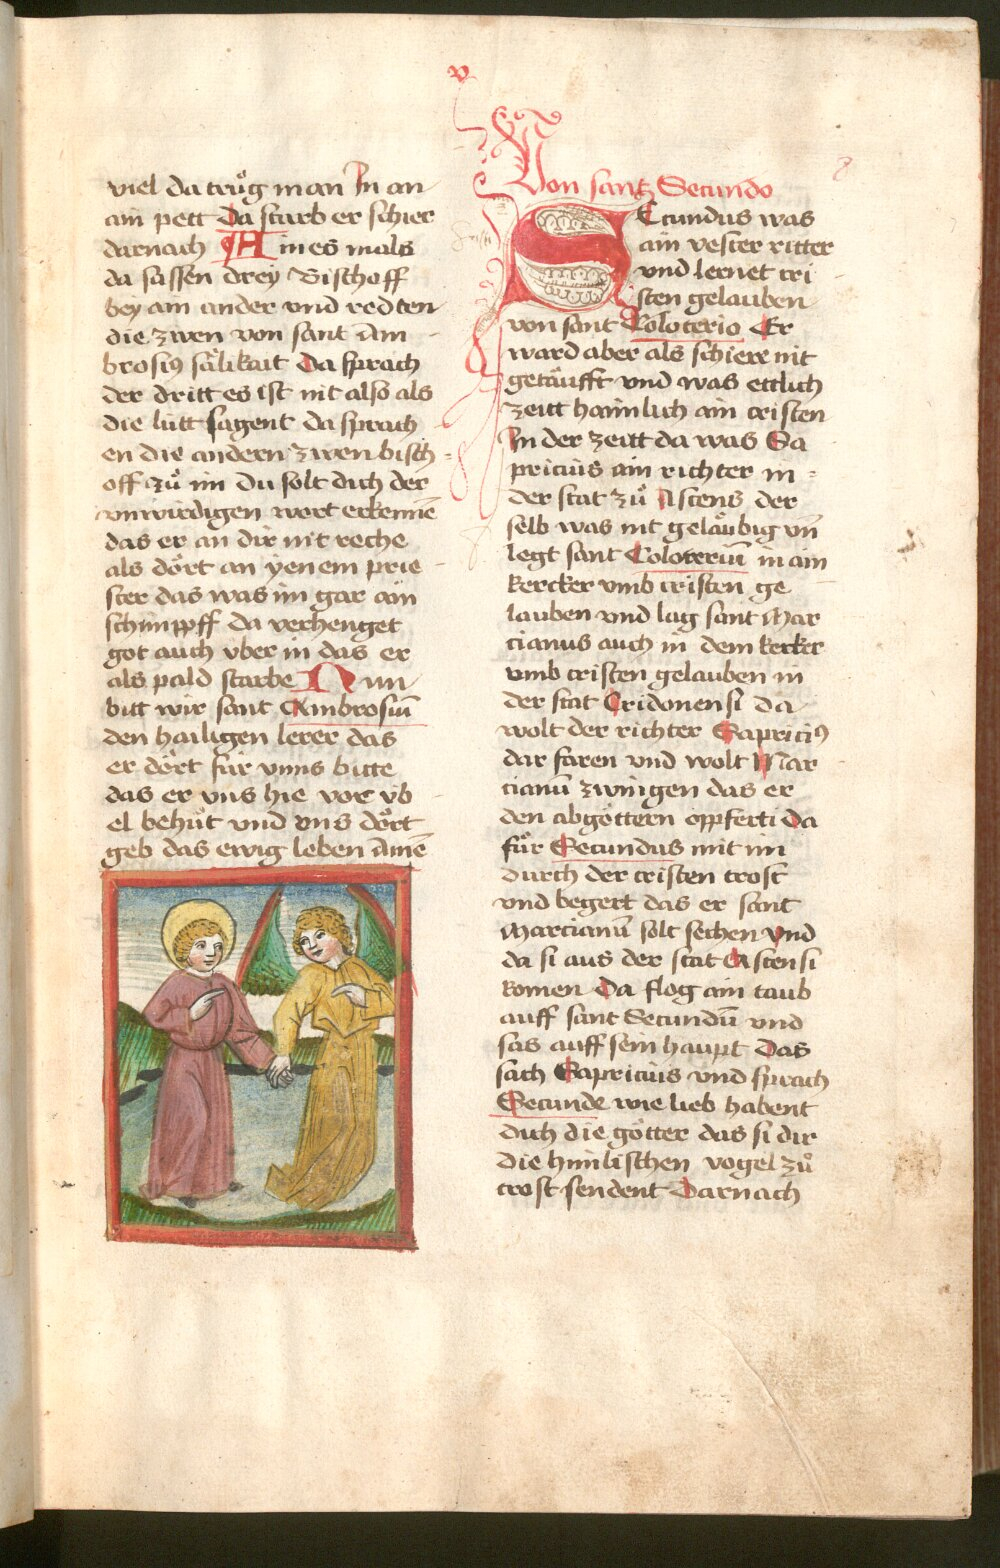 v
viel da trůg man In an
ain pett Da starb er schier
darnach Ain es mals
da sassen drey Bischoff
bey ain ander vnd redten
die zwen von sant Am
brosiꝰ sälikait Da sprach
der dritt es ist nit also als
die lütt sagent da sprach
en die andern zwen bisch
off zů im du solt dich der
vnwirdigen wort erkennē
das er an dir nit reche
als dört an yenem prie
ster das was im gar ain
schimpff da verhenget
got auch vber in das er
als pald starbe Nun
bitt wir sant Ambrosiū
den hailigen lerer das
er dört für vnns bitte
das er vns hie vor vb
el behüt vnd vns dört
geb das ewig leben Amē
Von santz Secundo
SEcundus was
ain vester ritter
vnd lernet cri
sten gelauben
von sant Coloterio Er
ward aber als schiere nit
getäufft vnd was ettlich
zeitt haimlich ain cristen
In der zeitt da was Sa
pricius ain richter in
der stat zů Astens der
selb was nit geläubig vn̄
legt sant Coloteriū in ain
kercker vmb cristen ge
lauben vnd lag sant Mar
cianus auch in dem kerker
vmb cristen gelauben in
der stat Cridonensi da
wolt der richter Sapriciꝰ
dar faren vnd wolt Mar
cianū zwingen das er
den abgöttern opferti da
fůr Secundus mit im
durch der cristen trost
vnd begert das er sant
Marcianū solt sechen vnd
da si aus der stat Astensi
komen Da flog ain taub
auff sant Secundū vnd
sas auff sein haupt Das
sach Sapricius vnd sprach
Secunde wie lieb habent
dich die götter das si dir
die himlischen vogel zů
trost sendent Darnach